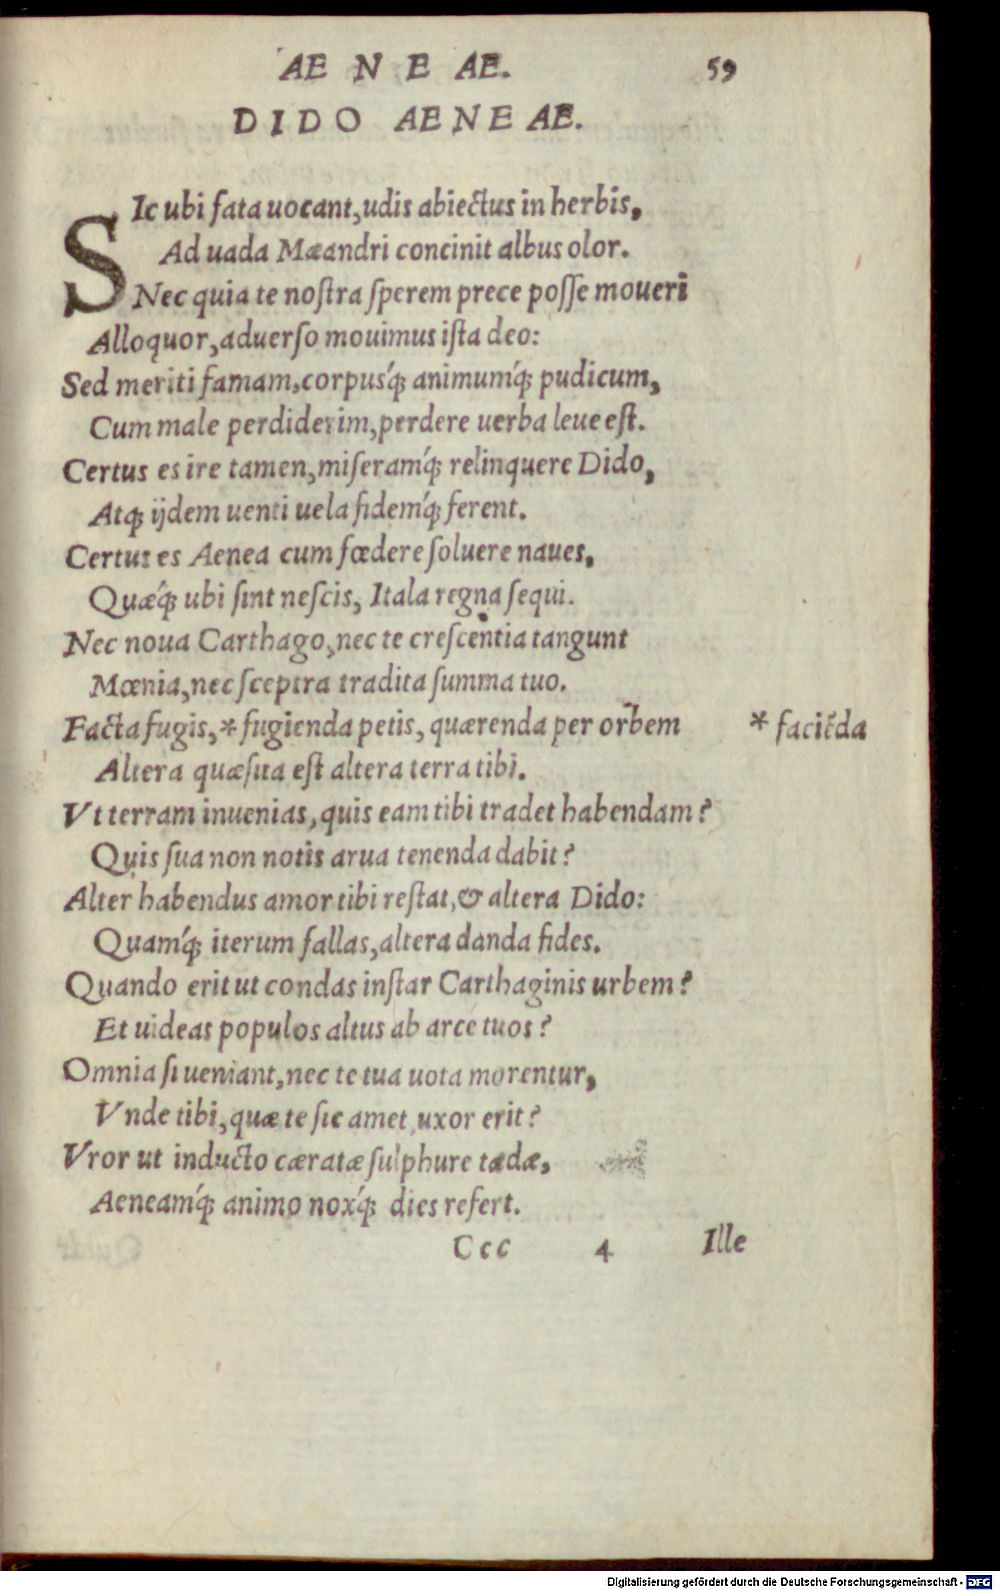 AE N E AE. 59
DIDO AENEAE.
SIc ubi fata uocant, udis abiectus in herbis,
Ad uada Mæandri concinit albus olor.
Nec quia te noſtra ſperem prece poſſe moueri
Alloquor, aduerſo mouimus iſta deo:
Sed meriti famam, corpusq́; animumq́; pudicum,
Cum male perdiderim, perdere uerba leue eſt.
Certus es ire tamen, miſeramq́; relinquere Dido,
Atq; ijdem uenti uela fidemq́; ferent.
Certus es Aenea cum fœdere ſoluere naues,
Quæq́; ubi ſint neſcis, Itala regna ſequi.
Nec noua Carthago, nec te creſcentia tangunt
Mœnia, nec ſceptra tradita ſumma tuo.
Facta fugis, * fugienda petis, quærenda per orbem * faciēda
Altera quæſita eſt altera terra tibi.
Vt terram inuenias, quis eam tibi tradet habendam?
Quis ſua non notis arua tenenda dabit?
Alter habendus amor tibi reſtat, & altera Dido:
Quamq́; iterum fallas, altera danda fides.
Quando erit ut condas inſtar Carthaginis urbem?
Et uideas populos altus ab arce tuos?
Omnia ſi ueniant, nec te tua uota morentur,
Vnde tibi, quæ te ſic amet uxor erit?
Vror ut inducto cæratæ ſulphure tædæ,
Aeneamq́; animo noxq́; dies refert.
Ccc 4 Ille
Digitalisierung gefördert durch die Deutsche Forschungsgemeinschaft - DFG